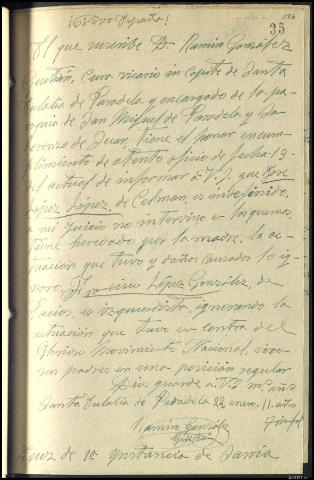 ¡Viva España!
186
35
El que suscribe Dn. Ramiro González
Guitián, Cura vicario in capite de Santa
Eulalia de Paradela y encargado de la pa-
rroquia de San Miguel de Paradela y Sa
Lorenzo de Suar, tiene el honor en cum-
plimiento de atento oficio de fecha 13
del actual de informar a V.S. que José
López López, de Celman, es indefinido,
a mi juicio no intervino en
tiene heredado por la madre, la ac-
tuación que tuvo y daños causados lo ig-
noro. Francisco López González, de
es izquierdista, ignorando la
actuación que tuvo en contra del
Glorioso Movimiento Nacional, vive
sus padres en una posición regular
Dios guarde a V.S. ms. añs.
Santa Eulalia de Paradela 22 enero, II año
Triunfal
Ramiro González
Guitián
Juez de 1ª Ynstancia de Sarria